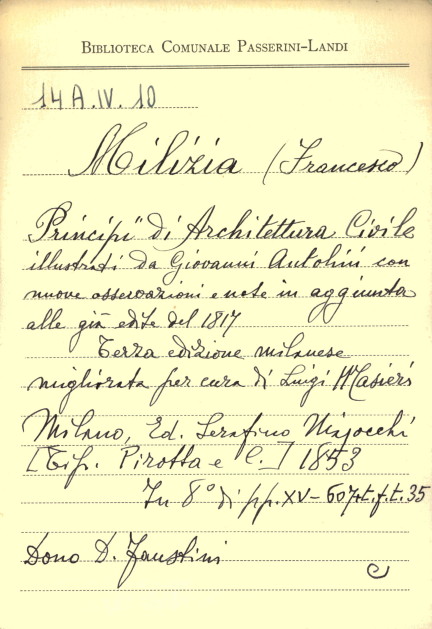 BIBLIOTECA COMUNALE PASSERINI-LANDI
14 A. IV. 10
Milizia (Francesco)
Principi di Architettura Civile
illustrati da Giovanni Antolini con
nuove osservazioni e note in aggiunta
alle già edite del 1817
Terza edizione milanese
migliorata per cura di Luigi Masieri
Milano, Ed. Serafino Majocchi
[Tip. Pirotta e C.] 1853
In 8° di pp. XV-607+t.f.t. 35
Dono D. Faustini
C